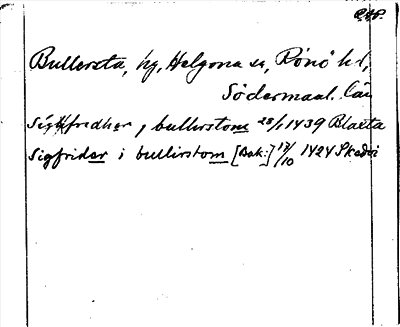 R.A.P.
Bullersta, hg, Helgona sn, Rönö hd,
Södermanl. län
Sigfredher j bullirstom 28/1 1439 Blaxta
Sigfrider i bullirstom [Bak:] 17/10 1424 Skedvi